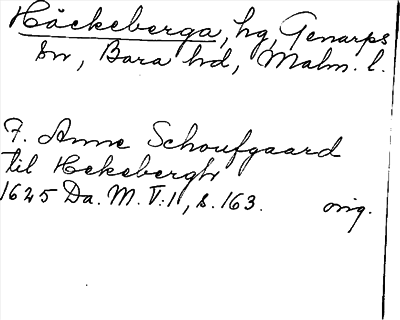 Häckeberga, hg, Genarps
sn, Bara hd, Malm. l.
F. Anne Schoufgaard
til Hekebergh
1625 Da. M. V:1, s. 163. orig.